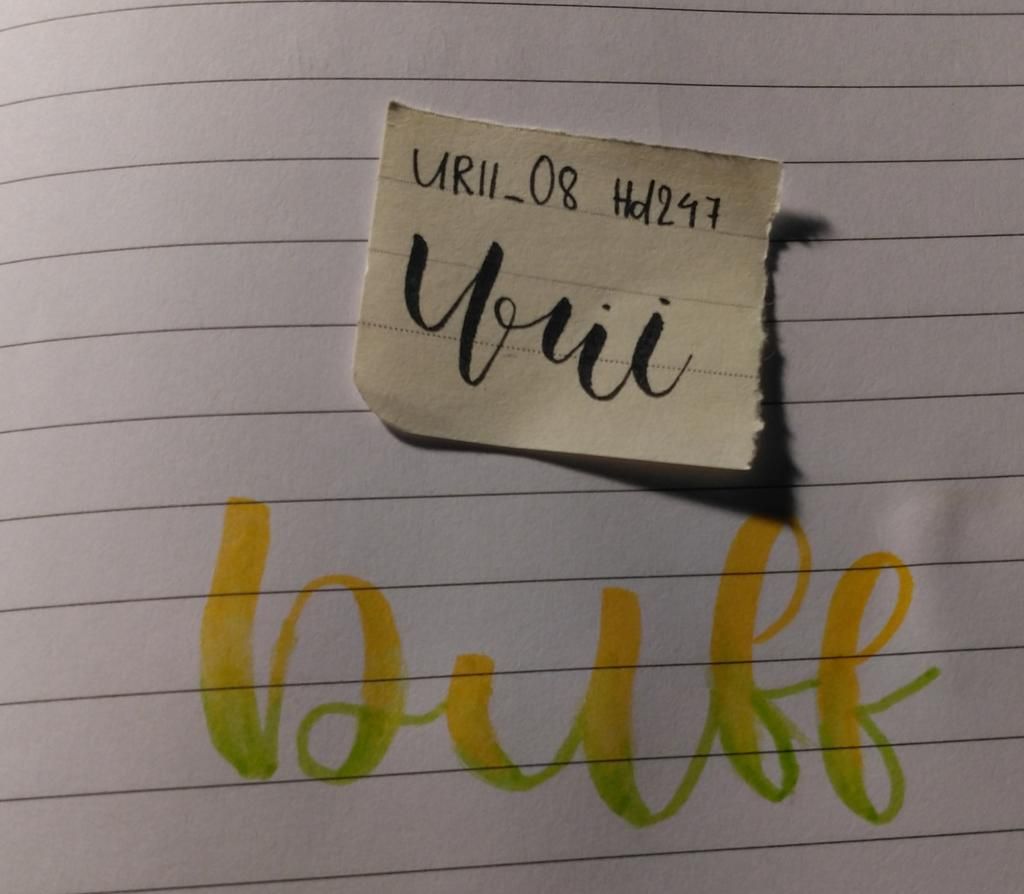 URII_08 Hd247
Urii
buff